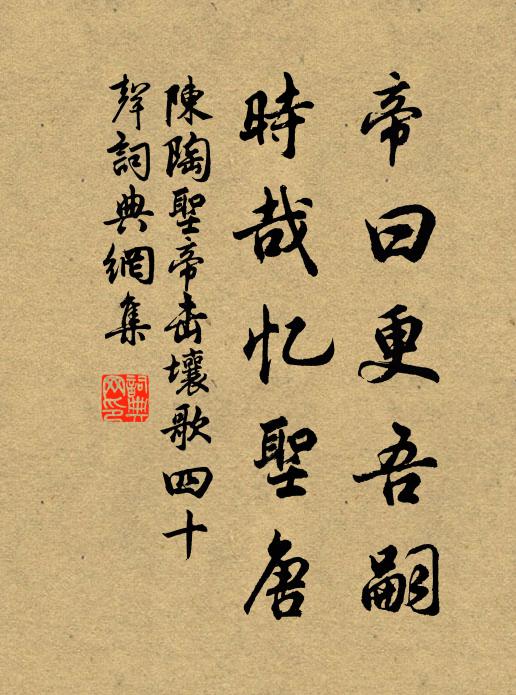 帝曰更吾嗣
時哉忆聖唐
陳陶聖帝击壤歌四十
聲詞典網集
詞典网印